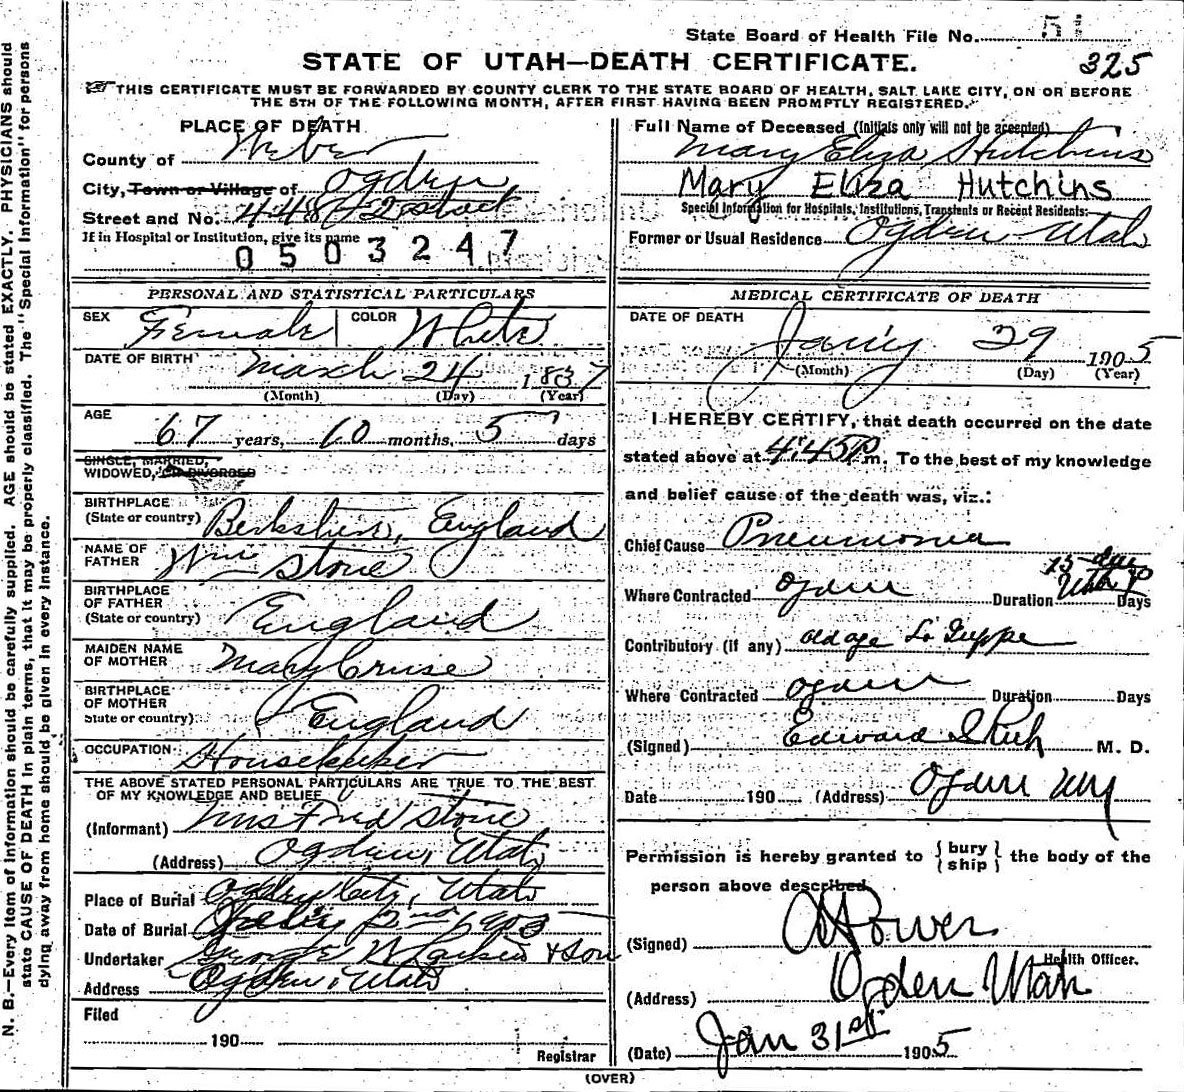 State Board of Health File No. 51
325
STATE OF UTAH—DEATH CERTIFICATE.
THIS CERTIFICATE MUST BE FORWARDED BY COUNTY CLERK TO THE STATE BOARD OF HEALTH, SALT LAKE CITY, ON OR BEFORE
THE 5TH OF THE FOLLOWING MONTH, AFTER FIRST HAVING BEEN PROMPTLY REGISTERED.
PLACE OF DEATH
County of Weber
City, Town or Village of Ogden
Street and No. 448 42 street
If in Hospital or Institution, give its name
0503247
Full Name of Deceased (Initials only will not be accepted)
Mary Eliza Hutchins
Mary Eliza Hutchins
Special Information for Hospitals, Institutions, Transients or Recent Residents:
Former or Usual Residence Ogden Utah
PERSONAL AND STATISTICAL PARTICULARS
SEX Female COLOR White
DATE OF BIRTH March 24 1837
(Month) (Day) (Year)
AGE 67 years, 10 months, 5 days
SINGLE, MARRIED,
WIDOWED, OR DIVORCED
BIRTHPLACE
(State or country) Berkshire, England
NAME OF
FATHER Wm Stone
BIRTHPLACE
OF FATHER
(State or country) England
MAIDEN NAME
OF MOTHER Mary Cruse
BIRTHPLACE
OF MOTHER
State or country) England
OCCUPATION Housekeeper
THE ABOVE STATED PERSONAL PARTICULARS ARE TRUE TO THE BEST
OF MY KNOWLEDGE AND BELIEF
(Informant) Fred Stone
(Address) Ogden, Utah
Place of Burial Ogden City, Utah
Date of Burial 2nd 1905
Undertaker George W Larkin & Son
Address Ogden, Utah
Filed
190
Registrar
MEDICAL CERTIFICATE OF DEATH
DATE OF DEATH
Jany 29 1905
(Month) (Day) (Year)
I HEREBY CERTIFY, that death occurred on the date
stated above at 4:45 P m. To the best of my knowledge
and belief cause of the death was, viz.:
Chief Cause Pneumonia
Where Contracted Ogden Duration 15 Days
Contributory (if any) old age La Grippe
Where Contracted Ogden Duration Days
(Signed) Edward I Rich M. D.
Date 190 (Address) Ogden
Permission is hereby granted to { bury ship } the body of the
person above described
(Signed) Power
Health Officer.
(Address) Ogden Utah
(Date) Jan 31st 1905
(OVER)
N. B.—Every item of information should be carefully supplied. AGE should be stated EXACTLY. PHYSICIANS should
state CAUSE OF DEATH in plain terms, that it may be properly classified. The "Special Information" for persons
dying away from home should be given in every instance.